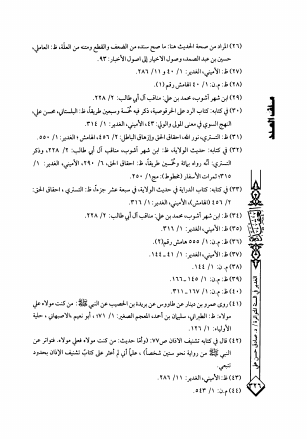 (٢٦) المراد من صحة الحديث هنا: ما صح سنده من الضعف والقطع ومتنه من العلّة، ظ: العاملي،
حسين بن عبد الصمد، وصول الأخيار إلى أصول الأخبار: ٩٣.
(٢٧) ظ: الأميني، الغدير: ١/ ٤٠ و ١١/ ٢٨٦.
(٢٨) ظ: م.ن: ١/ ٤٠ الهامش رقم (١).
(٢٩) ابن شهر آشوب، محمد بن علي: مناقب آل أبي طالب: ٢/ ٢٢٨.
(٣٠) في كتابه: كتاب الرد على الحرقوصية، ذكر فيه خمسة وسبعين طريقاً، ظ: البلستاني، محسن علي،
النهج السوي في معنى المولى والولي: ٤٣؛ الأميني، الغدير: ١/ ٣١٤.
(٣١) ظ: التستري، نور الله، إحقاق الحق وإزهاق الباطل: ٢/ ٤٥٦؛ الغدير: ١/ ٥٥٠.
(٣٢) في كتابه: حديث الولاية، ظ: ابن شهر آشوب، مناقب آل أبي طالب: ٢/ ٢٢٨، وذكر
التستري: أنّه رواه بمائة وخمسين طريقاً، ظ: إحقاق الحق، ٦/ ٢٩٠، الأميني، الغدير: ١/
٣١٥؛ ثمرات الأسفار (مخطوط): مج١/ ٢٥٠.
(٣٣) في كتابه: كتاب الدراية في حديث الولاية، في سبعة عشر جزءاً، ظ: التستري، إحقاق الحق:
٢/ ٤٥٦ (الهامش)، الأميني، الغدير: ١/ ٣١٦.
(٣٤) ظ: ابن شهر آشوب، محمد بن علي: مناقب آل أبي طالب: ٢/ ٢٢٨.
(٣٥) ظ: الأميني، الغدير: ١/ ٣١١.
(٣٦) ظ: م.ن: ١/ ٥٥٥ هامش رقم(٢).
(٣٧) ظ: الأميني، الغدير: ١/ ٤١-١٤٤.
(٣٨) م.ن: ١/ ١٤٤.
(٣٩) ظ: م.ن: ١/ ١٤٥-١٦٦.
(٤٠) ظ: م.ن: ١/ ١٦٧-٣١١.
(٤١) روى عمرو بن دينار عن طاووس عن بريدة بن الحصيب عن النبي ﷺ: من كنت مولاه علي
مولاه. ظ: الطبراني، سليمان بن أحمد، المعجم الصغير: ١/ ١٧١؛ أبو نعيم الأصبهاني، حلية
الأولياء: ١/ ١٢٦.
(٤٢) قال في كتابه تشنيف الآذان ص٧٧: (وأمّا حديث: من كنت مولاه فعلي مولاه. فتواتر عن
النبي ﷺ من رواية نحو ستين شخصاً)، علماً أني لم أعثر على كتاب تشنيف الآذان بحدود
تتبعي.
(٤٣) ظ: الأميني، الغدير: ١١/ ٢٨٦.
(٤٤) م.ن: ١/ ٥٤٣.
ملف العدد
الغدير في السنة المتواترة / د. صادق حسن علي
٣٢٦